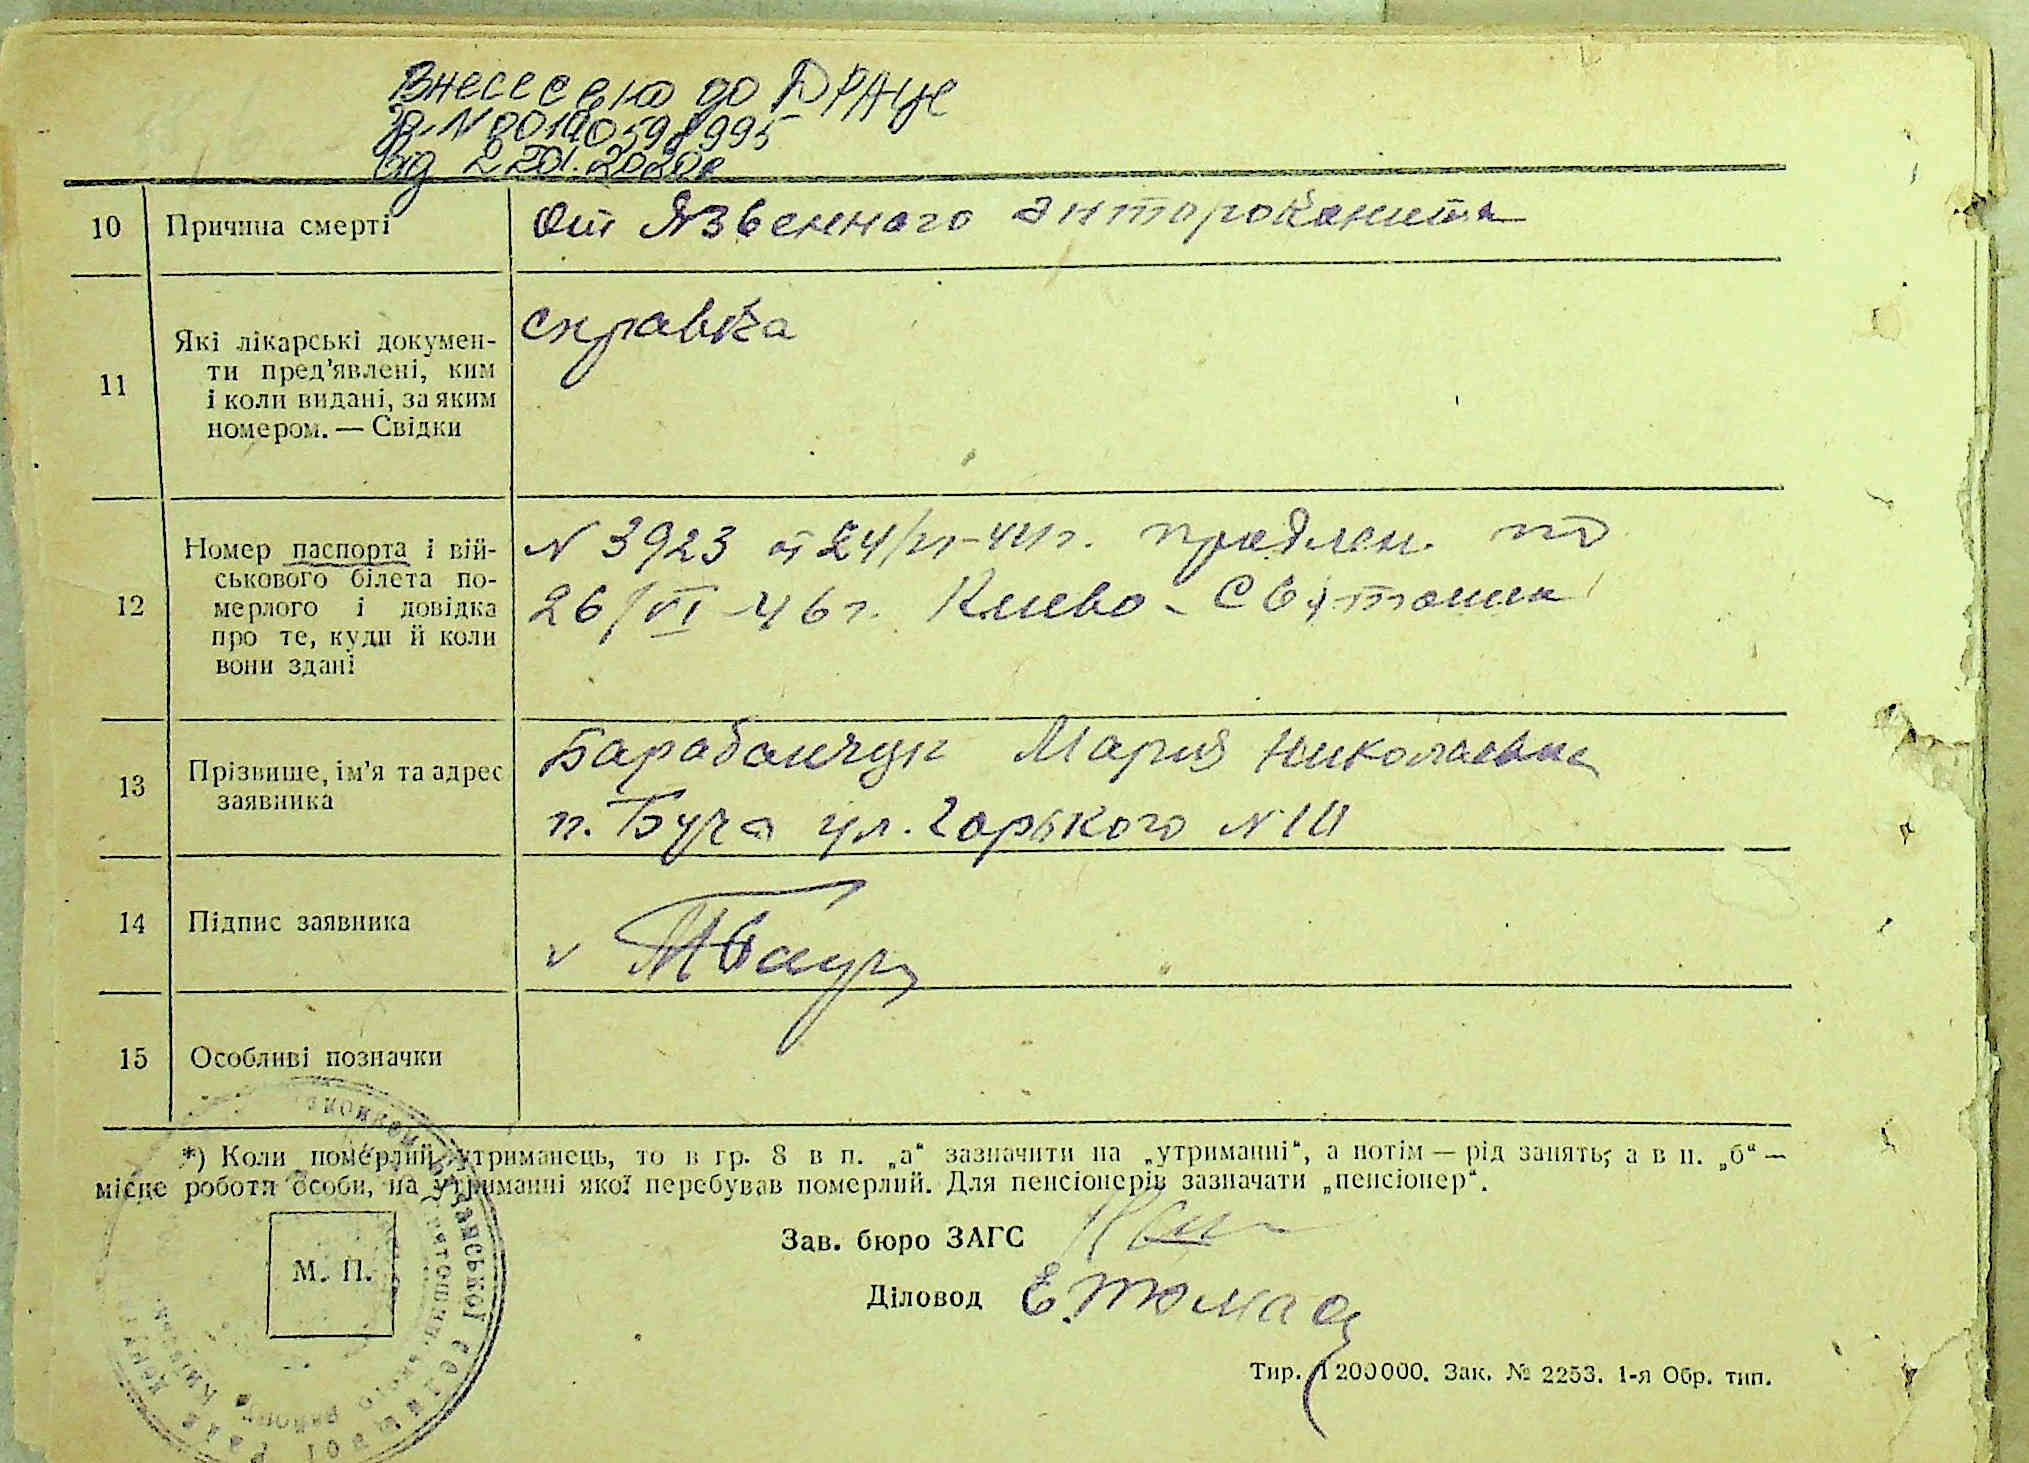 Внесено до ДРАЦС
від 22.01.2020р
10 Причина смерті От Язвенного энтероколита
11 Які лікарські докумен-
ти пред'явлені, ким
і коли видані, за яким
номером. — Свідки
справка
12 Номер паспорта і вій-
ськового білета по-
мерлого і довідка
про те, куди й коли
вони здані
N 3923 от 24/VI-41г. продлен. по
26/VI-46г. Киево-Святошин
13 Прізвище, ім'я та адрес
заявника
Мария Николаевна
п. Буча ул. Горького N
14 Підпис заявника
15 Особливі позначки
*) Коли померлий утриманець, то в гр. 8 в п. „а“ зазначити на „утриманні“, а потім — рід занять; а в п. „б“ —
місце роботи особи, на утриманні якої перебував померлий. Для пенсіонерів зазначати „пенсіонер“.
М. П.
Зав. бюро ЗАГС
Діловод
Тир. 1200000. Зак. № 2253. 1-я Обр. тип.